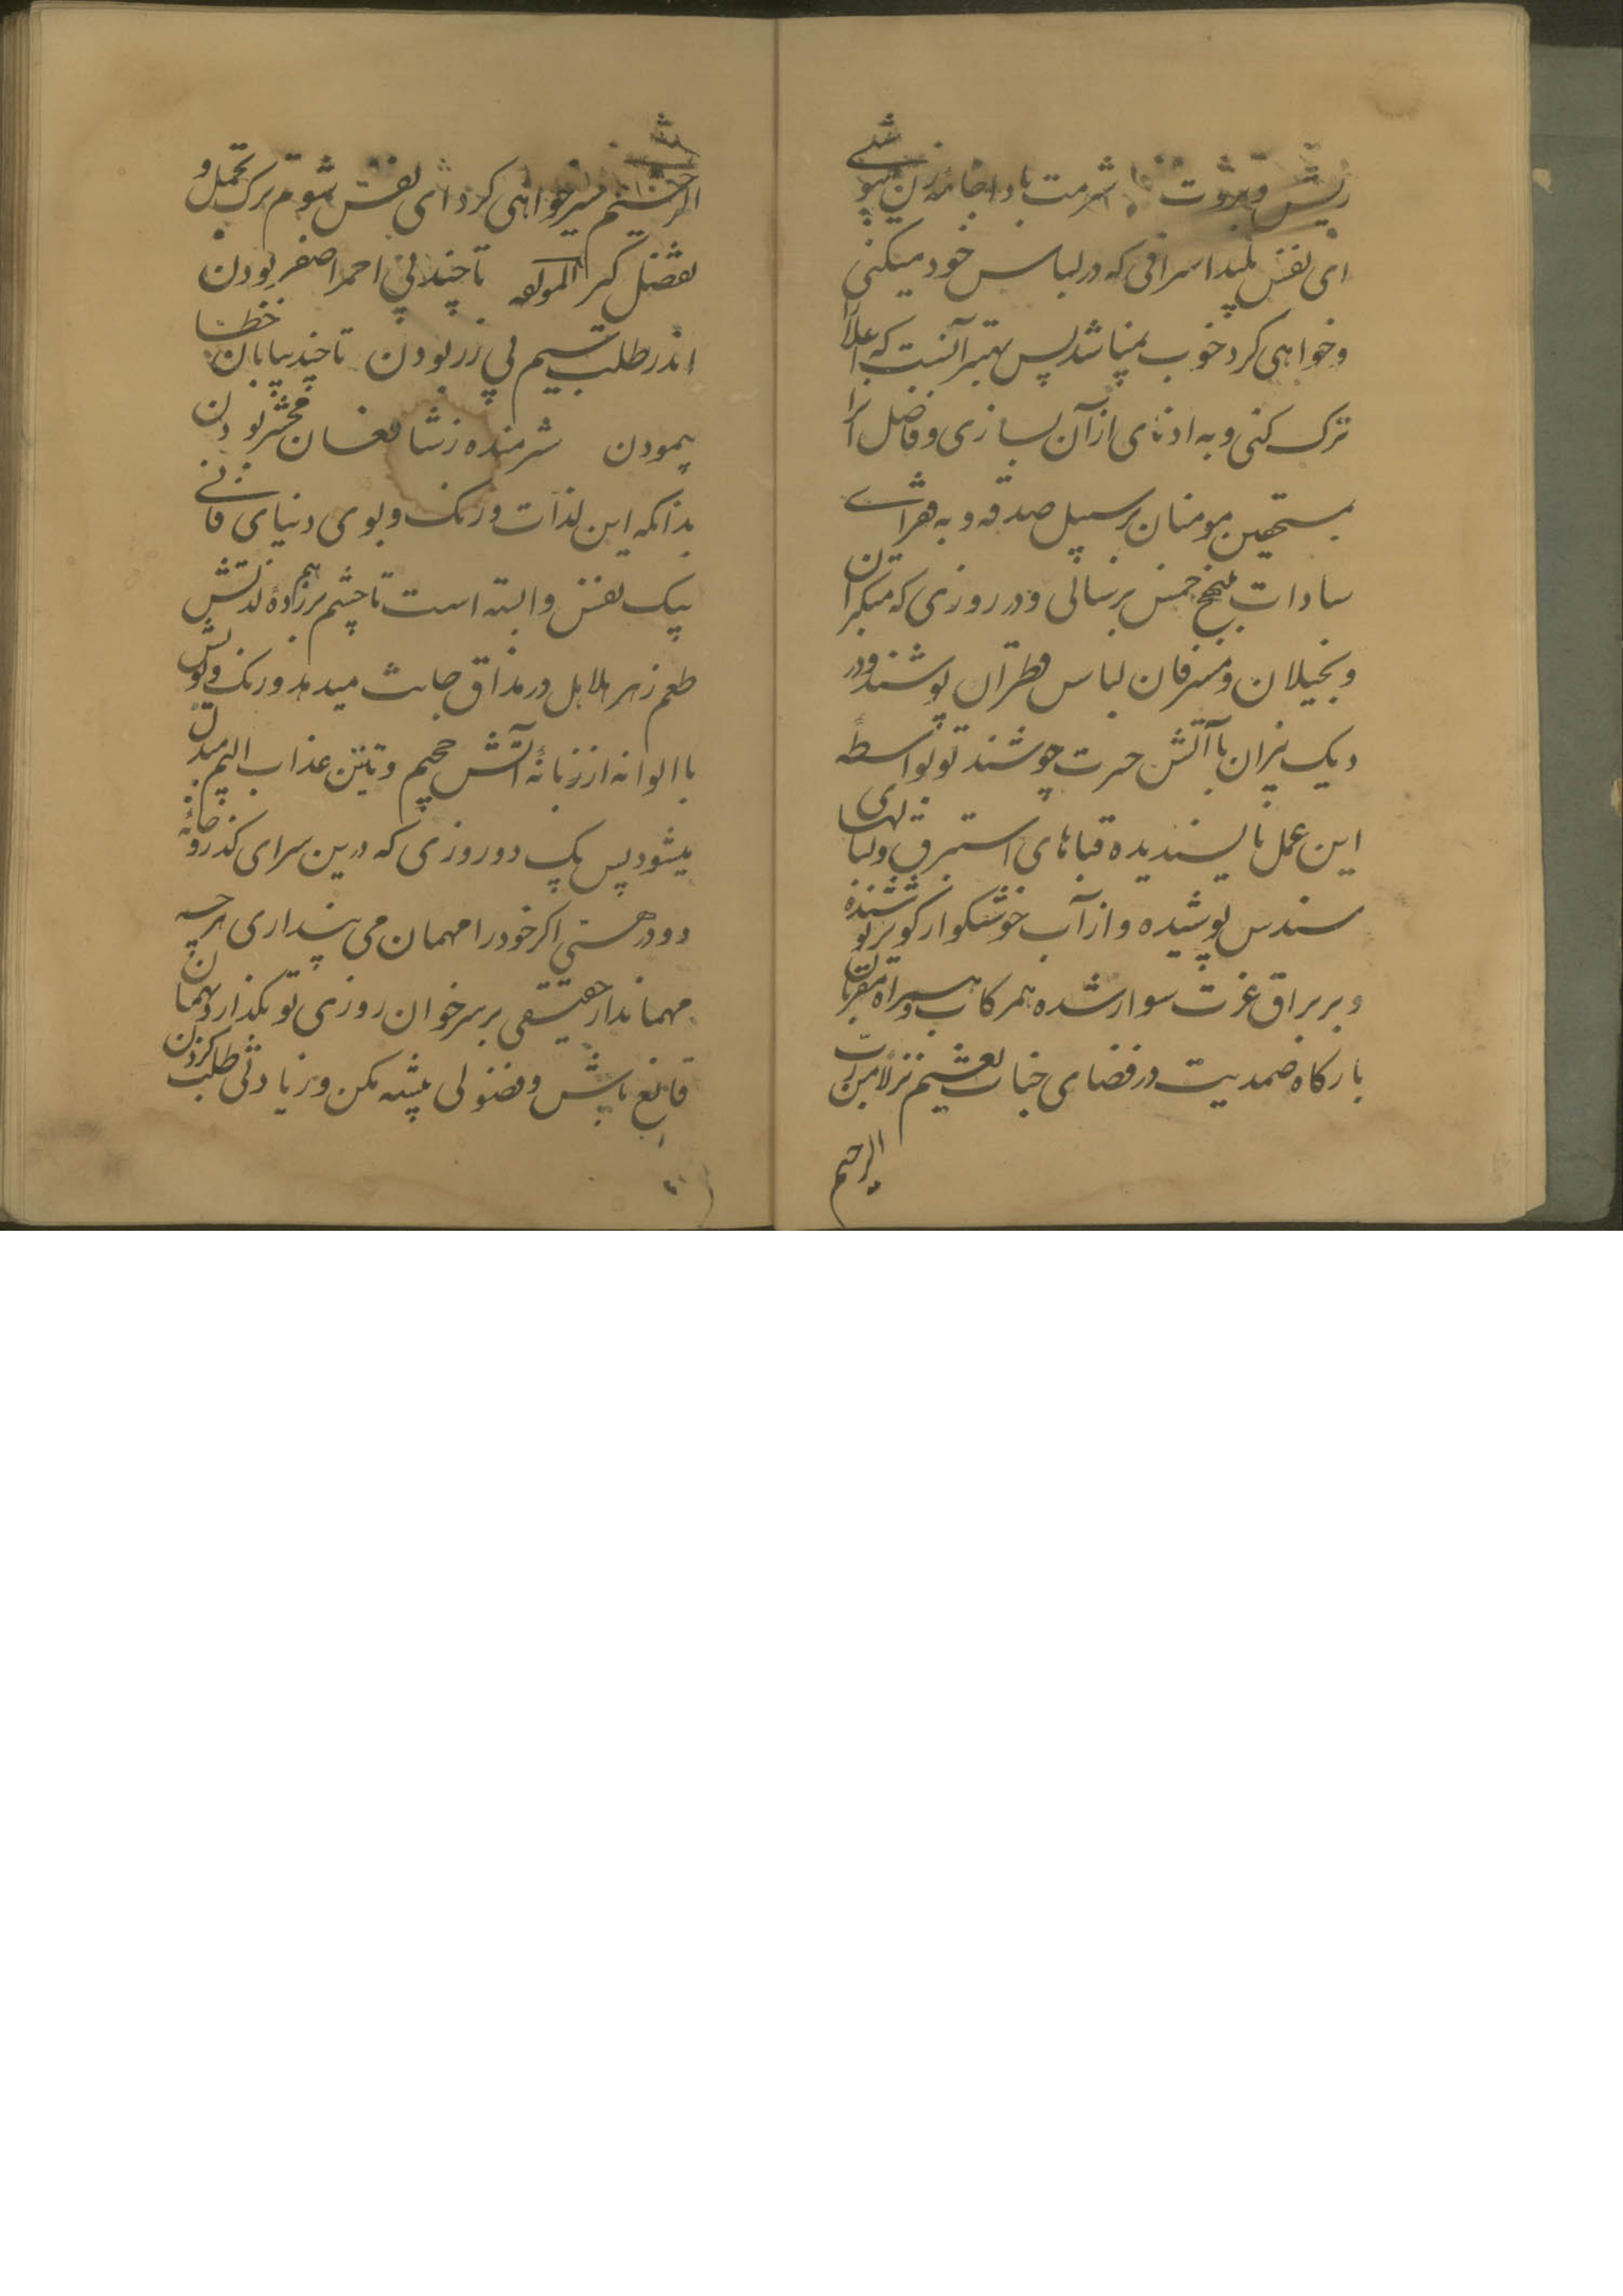 ریش و بروت شرمت بادا جامه زن پوشی
ای نفس پلید اسرافی که در لباس خود میکنی
و خواهی کرد خوب نمیباشد پس بهتر آنست که اعلا را
ترک کنی و به ادنای از آن بسازی و فاضل آنرا
بمستحقین مومنان بر سبیل صدقه و به فقرای
سادات بنهج خمس برسانی و در روزی که متکبران
و بخیلان و مسرفان لباس قطران پوشند و در
دیک نیران با آتش حسرت جوشند تو بواسطهٔ
این عمل ناپسندیده قباهای استبرق و لباسهای
سندس پوشیده و از آب خوشکوار کوثر نوشنده
و بر براق عزت سوار شده همرکاب و همراه مقربان
بارکاه صمدیت در فضای جنات نعیم نزلا من رب
الرحیم
الرحیم سیر خواهی کرد ای نفس شوم ترک تجمل و
تفضل کیر لمولفه تا چند پی احمر اصفر بودن
اندر طلب سیم پی زر بودن تا چند بیابان خطا
پیمودن شرمنده ز شافعان محشر بودن
بدانکه این لذات و رنک و بوی دنیای فانی
بیک نفس وابسته است تا چشم برهم زدهٔ لذتش
طعم زهر هلاهل در مذاق جانت میدهد و رنک و بویش
با الوانه از زبانهٔ آتش جحیم و نتن عذاب الیم مبدل
میشود پس یک دو روزی که درین سرای کذر و خانهٔ
دو در هستی اکر خود را مهمان می پنداری هرچه
مهماندار حقیقی بر سر خوان روزی تو بکذارد بهمان
قانع باش و فضولی پیشه مکن و زیادتی طلب کردن